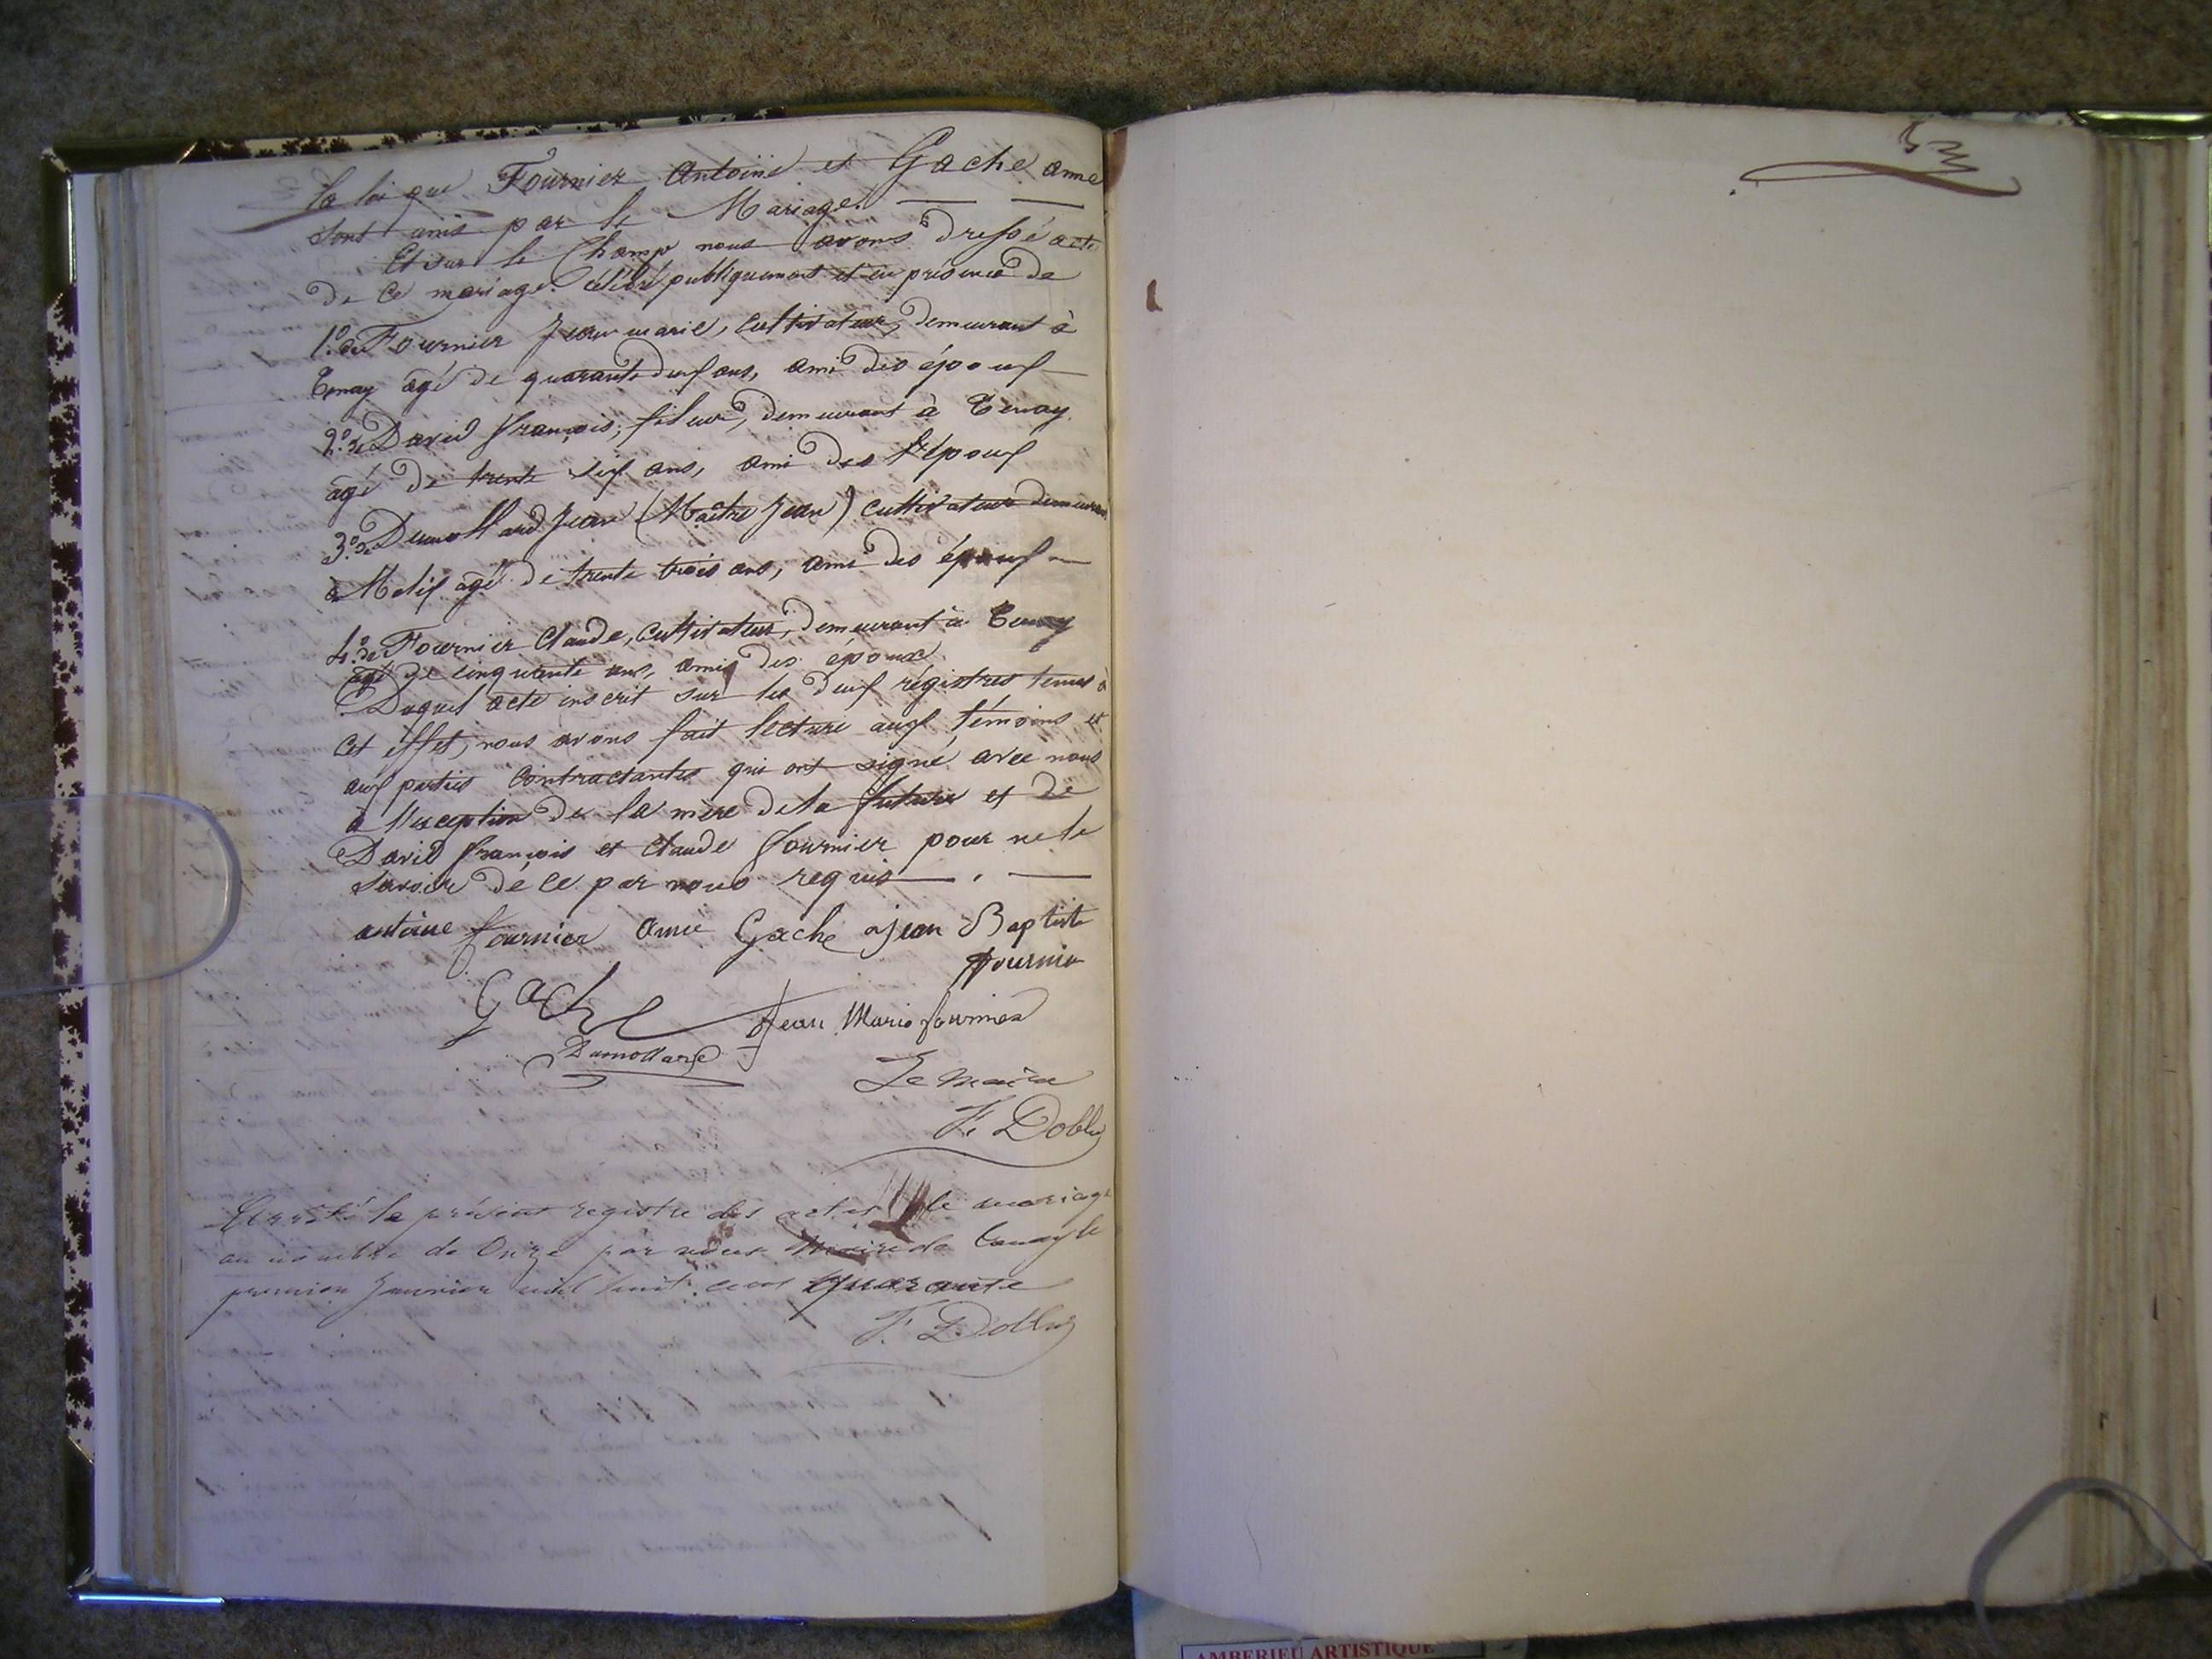 la loi que Fournier Antoine et Gache anne
sont unis par le Mariage.
Et sur le Champ nous avons dressé acte
de ce mariage célébré publiquement et en présence de
1.° de Fournier Jean marie, cultivateur, demeurant à
Tenay âgé de quarante deux ans, ami des époux
2.° de David françois, fileur, demeurant à Tenay
âgé de trente six ans, ami des époux
3.° de Dumollard Jean (Maître Jean) cultivateur demeurant
à agé de trente trois ans, ami des époux
4.° de Fournier Claude, cultivateur, demeurant à Tenay
agé de cinquante ans, ami des époux
Duquel acte inscrit sur les deux régistres tenus à
cet effet, nous avons fait lecture aux témoins et
aux parties contractantes qui ont signé avec nous
à l'exception de la mère de la future et de
David françois et Claude fournier pour ne le
savoir de ce par nous requis
antoine fournier anne Gache jean Baptiste
fournier
Gache Jean Marie fournier
Dumollard
Le Maire
F. Dobly
Arrêté le présent registre des actes de mariage
au nombre de Onze par nous Maire de Tenay le
premier Janvier mil huit cent quarante
F. Dobly
53
AMBERIEU ARTISTIQUE